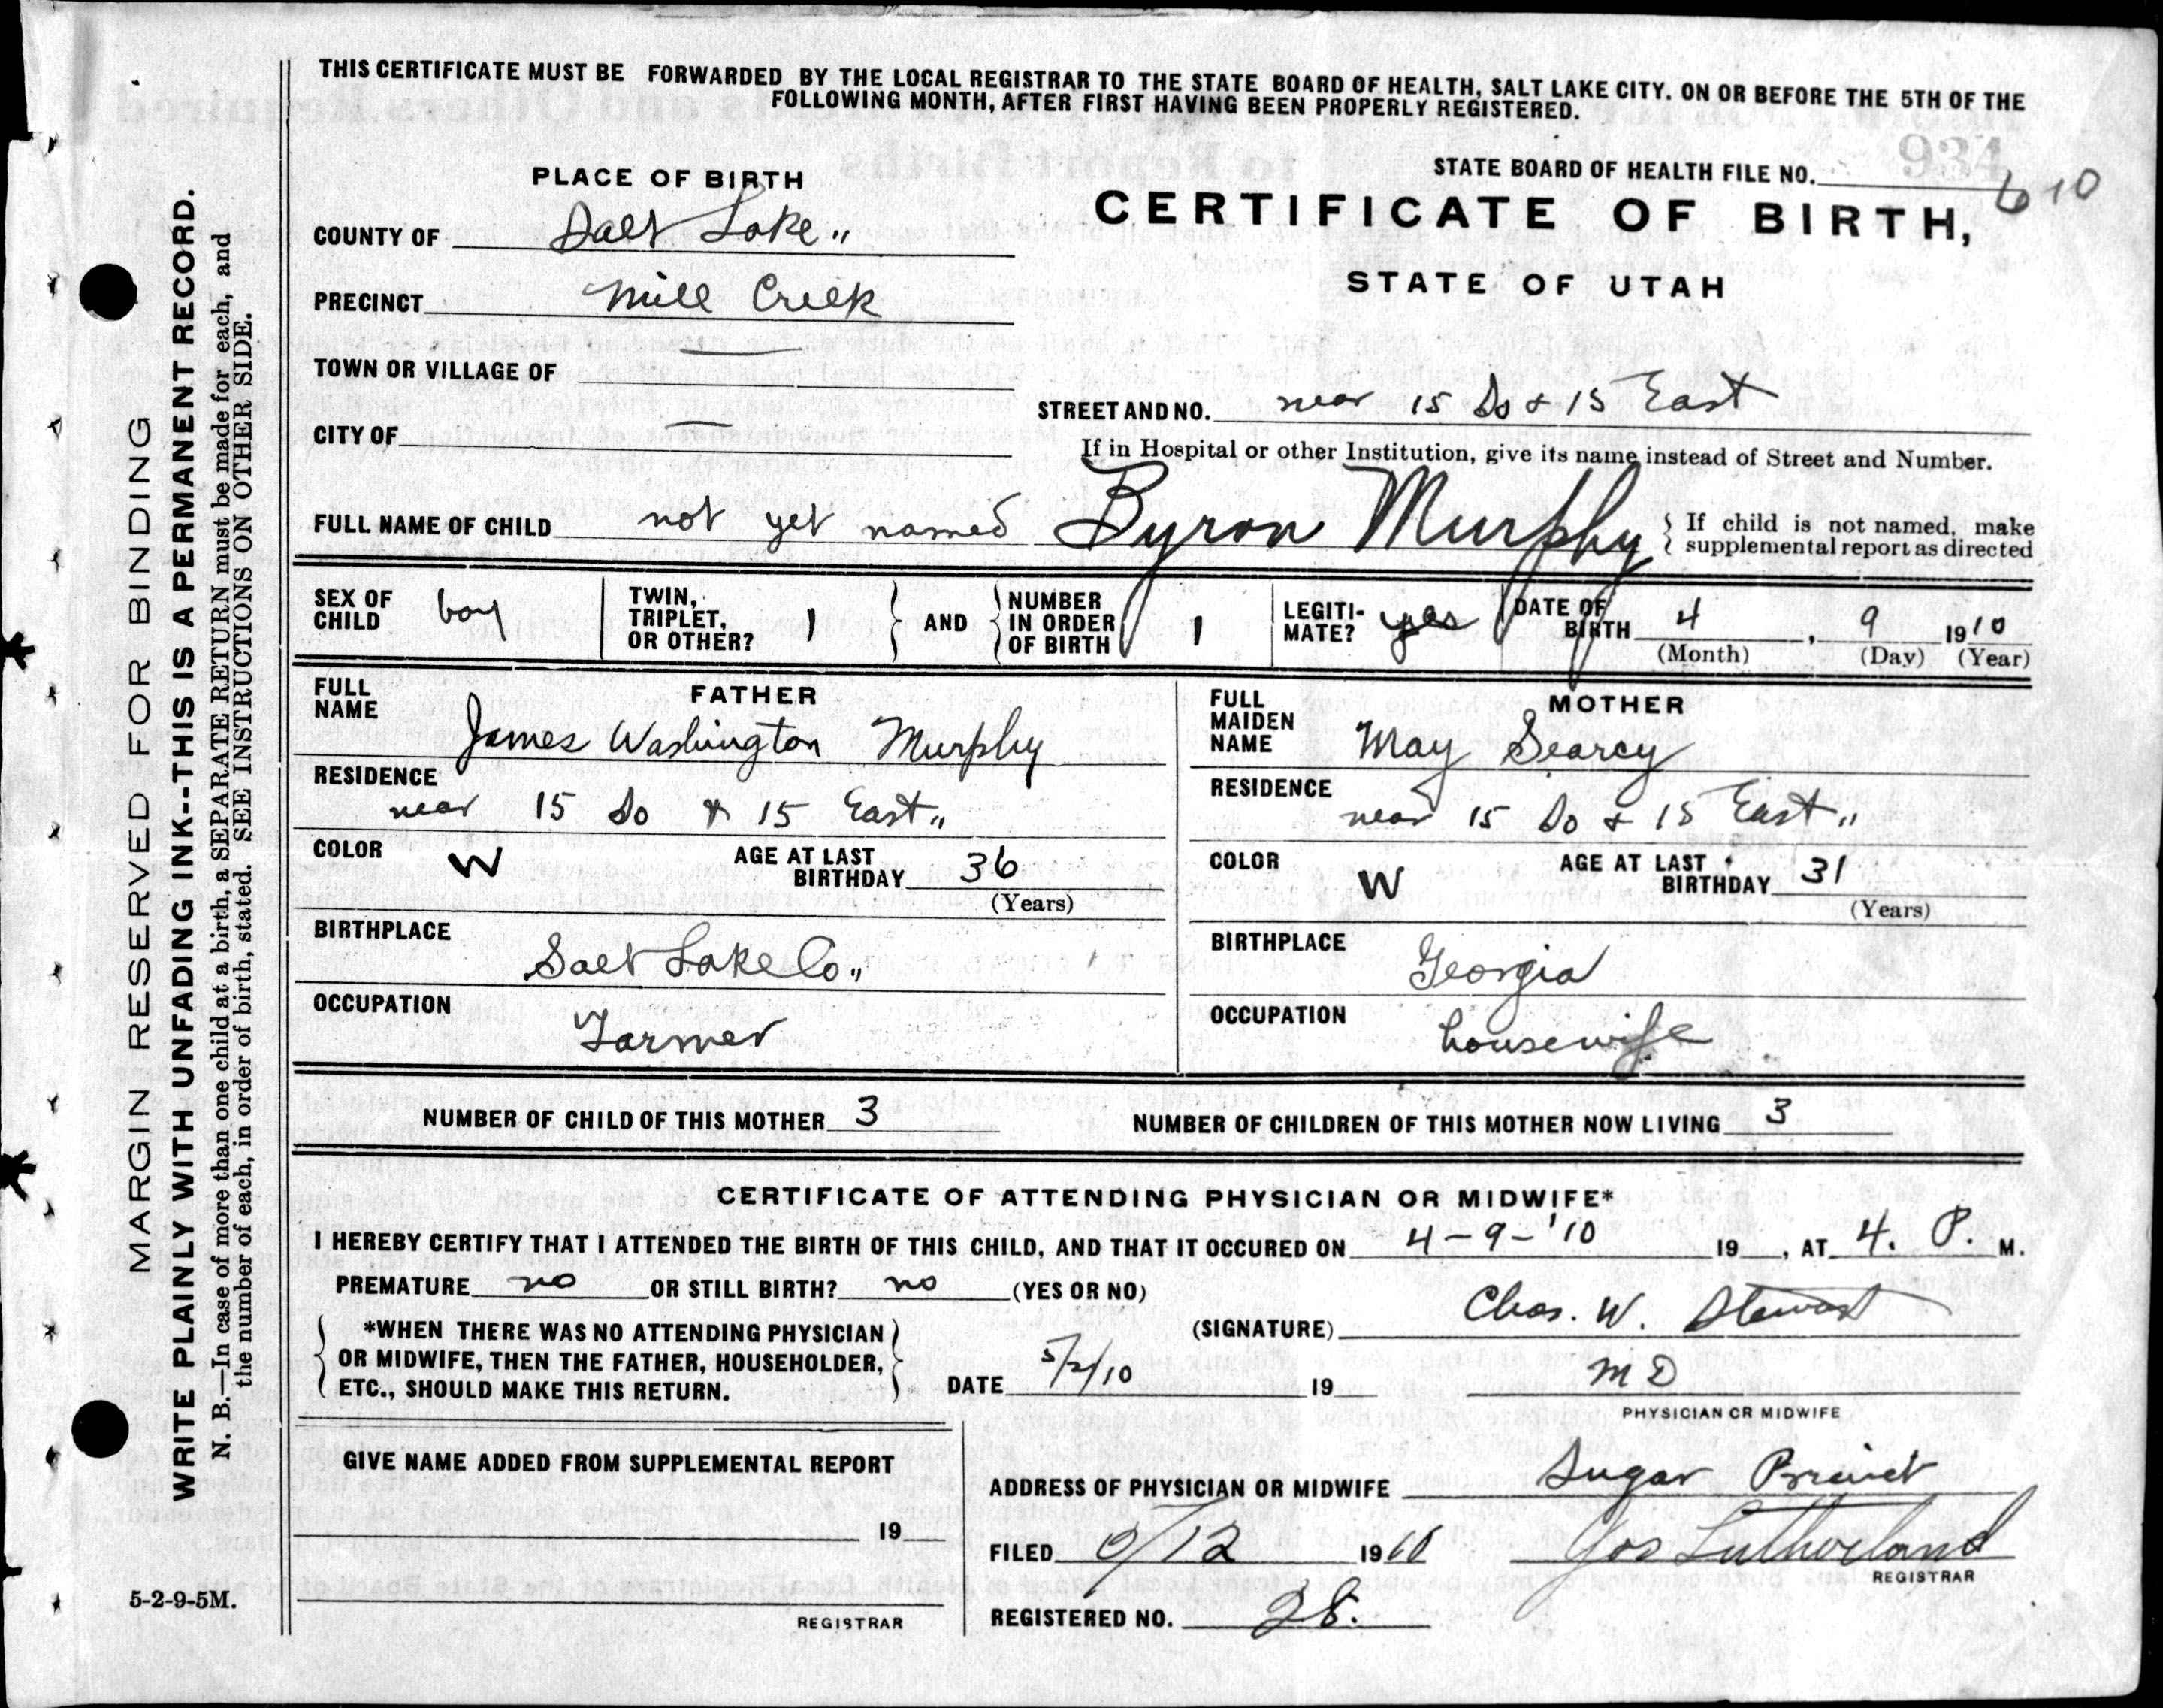 THIS CERTIFICATE MUST BE FORWARDED BY THE LOCAL REGISTRAR TO THE STATE BOARD OF HEALTH, SALT LAKE CITY. ON OR BEFORE THE 5TH OF THE
FOLLOWING MONTH, AFTER FIRST HAVING BEEN PROPERLY REGISTERED.
934
STATE BOARD OF HEALTH FILE NO. 610
CERTIFICATE OF BIRTH,
STATE OF UTAH
PLACE OF BIRTH
COUNTY OF Salt Lake "
PRECINCT Mill Creek
TOWN OR VILLAGE OF —
CITY OF —
STREET AND NO. near 15 So & 15 East
If in Hospital or other Institution, give its name instead of Street and Number.
FULL NAME OF CHILD not yet named Byron Murphy
{ If child is not named, make
supplemental report as directed
SEX OF CHILD boy
TWIN, TRIPLET, OR OTHER? 1 } AND { NUMBER IN ORDER OF BIRTH 1
LEGITI-MATE? yes
DATE OF BIRTH 4, 9 1910
(Month) (Day) (Year)
FATHER
FULL NAME James Washington Murphy
RESIDENCE near 15 So & 15 East "
COLOR W AGE AT LAST BIRTHDAY 36
(Years)
BIRTHPLACE Salt Lake Co "
OCCUPATION Farmer
MOTHER
FULL MAIDEN NAME May Searcy
RESIDENCE near 15 So & 15 East "
COLOR W AGE AT LAST BIRTHDAY 31
(Years)
BIRTHPLACE Georgia
OCCUPATION housewife
NUMBER OF CHILD OF THIS MOTHER 3 NUMBER OF CHILDREN OF THIS MOTHER NOW LIVING 3
CERTIFICATE OF ATTENDING PHYSICIAN OR MIDWIFE*
I HEREBY CERTIFY THAT I ATTENDED THE BIRTH OF THIS CHILD, AND THAT IT OCCURED ON 4-9-'10 19 , AT 4. P. M.
PREMATURE no OR STILL BIRTH? no (YES OR NO)
{ *WHEN THERE WAS NO ATTENDING PHYSICIAN }
OR MIDWIFE, THEN THE FATHER, HOUSEHOLDER,
ETC., SHOULD MAKE THIS RETURN.
(SIGNATURE) Chas. W. Stewart
DATE 5/2/10 19 M D
PHYSICIAN OR MIDWIFE
GIVE NAME ADDED FROM SUPPLEMENTAL REPORT
19
REGISTRAR
ADDRESS OF PHYSICIAN OR MIDWIFE Sugar
FILED /12 1910 Jos Sutherland
REGISTRAR
REGISTERED NO. 28.
5-2-9-5M.
MARGIN RESERVED FOR BINDING
WRITE PLAINLY WITH UNFADING INK--THIS IS A PERMANENT RECORD.
N. B.—In case of more than one child at a birth, a SEPARATE RETURN must be made for each, and
the number of each, in order of birth, stated. SEE INSTRUCTIONS ON OTHER SIDE.